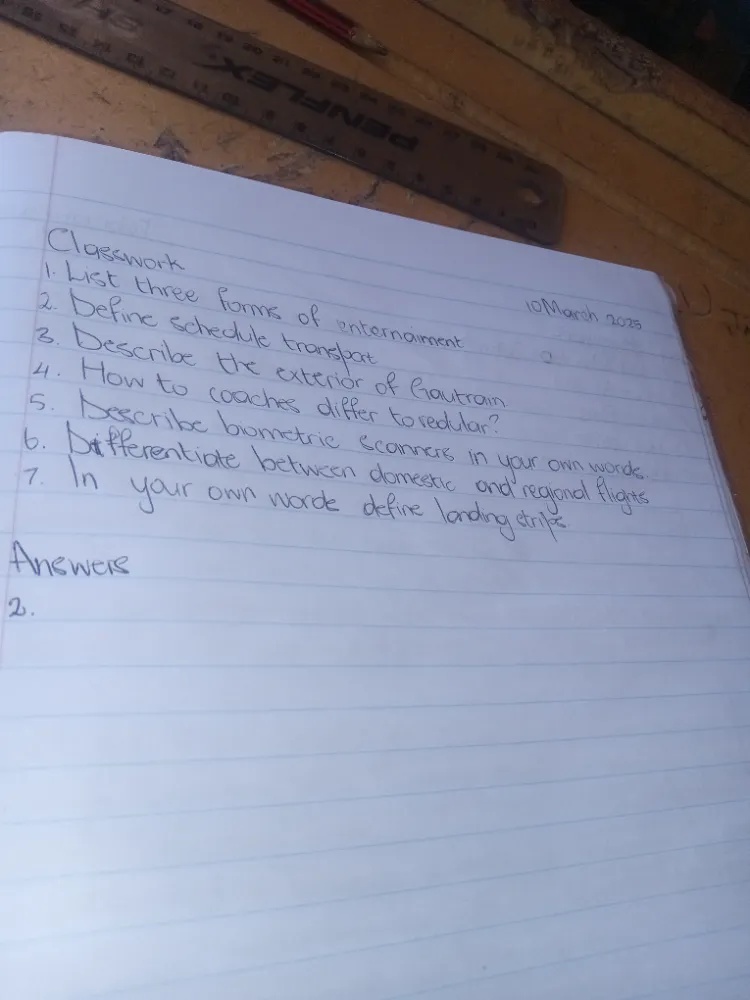 PENFLEX
Classwork
10 March 2025
1. List three forms of enternaiment
2. Define schedule transpot
3. Describe the exterior of Gautrain
4. How to coaches differ to redular?
5. Describe biometric scanners in your own words.
6. Differentiate between domestic and regional flights
7. In your own words define landing strips.
Answers
2.